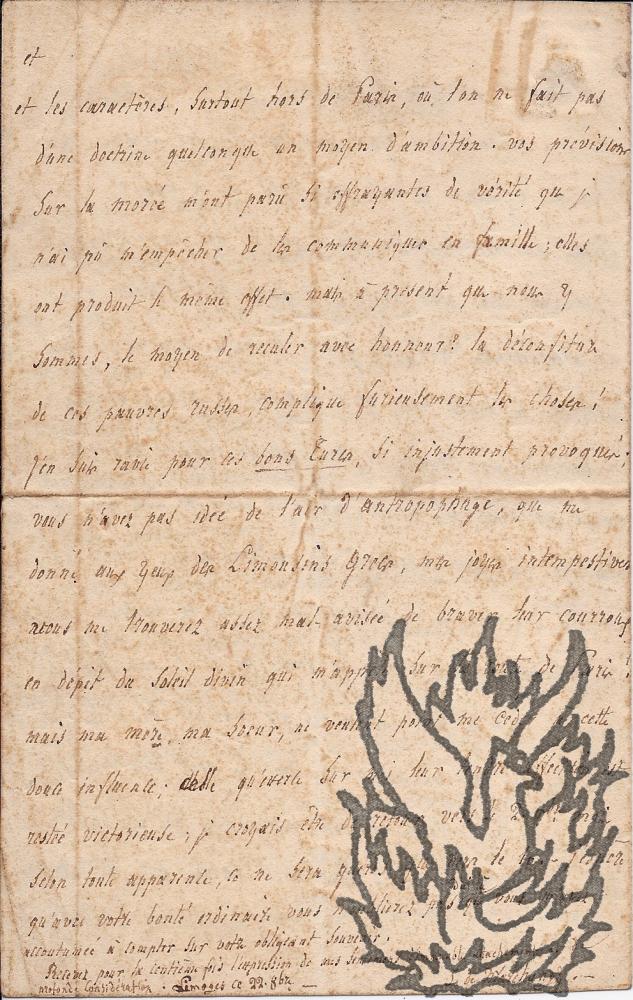 et
et les caractères, surtout hors de Paris, où l'on ne fait pas
d'une doctrine quelconque un moyen d'ambition. vos prévisions
sur la morée m'ont paru si effrayantes de vérité que je
n'ai pû m'empêcher de les communiquer en famille; elles
ont produit le même effet. mais à présent que nous y
sommes, le moyen de reculer avec honneur? la déconfiture
de ces pauvres russes, complique furieusement les choses!
j'en suis ravie pour ces bons Turcs, si injustement provoqués;
vous n'avez pas idée de l'air d'antropophage, que me
donne aux yeux des Limousins Grecs, mes joyes intempestives
vous me trouverez assez mal-avisée de braver leur courroux
en dépit du soleil divin qui m'appelle sur de Paris!
mais ma mère, ma soeur, ne veulent point me céder cette
douce influence; celle qu'exerce sur moi leur tendre affection est
restée victorieuse; je croyais être de retour vers le
selon toute apparence, ce ne sera guères
qu'avec votre bonté ordinaire vous n'oublierez pas que vous
accoutumée à compter sur votre obligeant souvenir.
Recevez pour la centième fois l'expression de mes sentiments
profonde considération. Limoges ce 22. 8bre